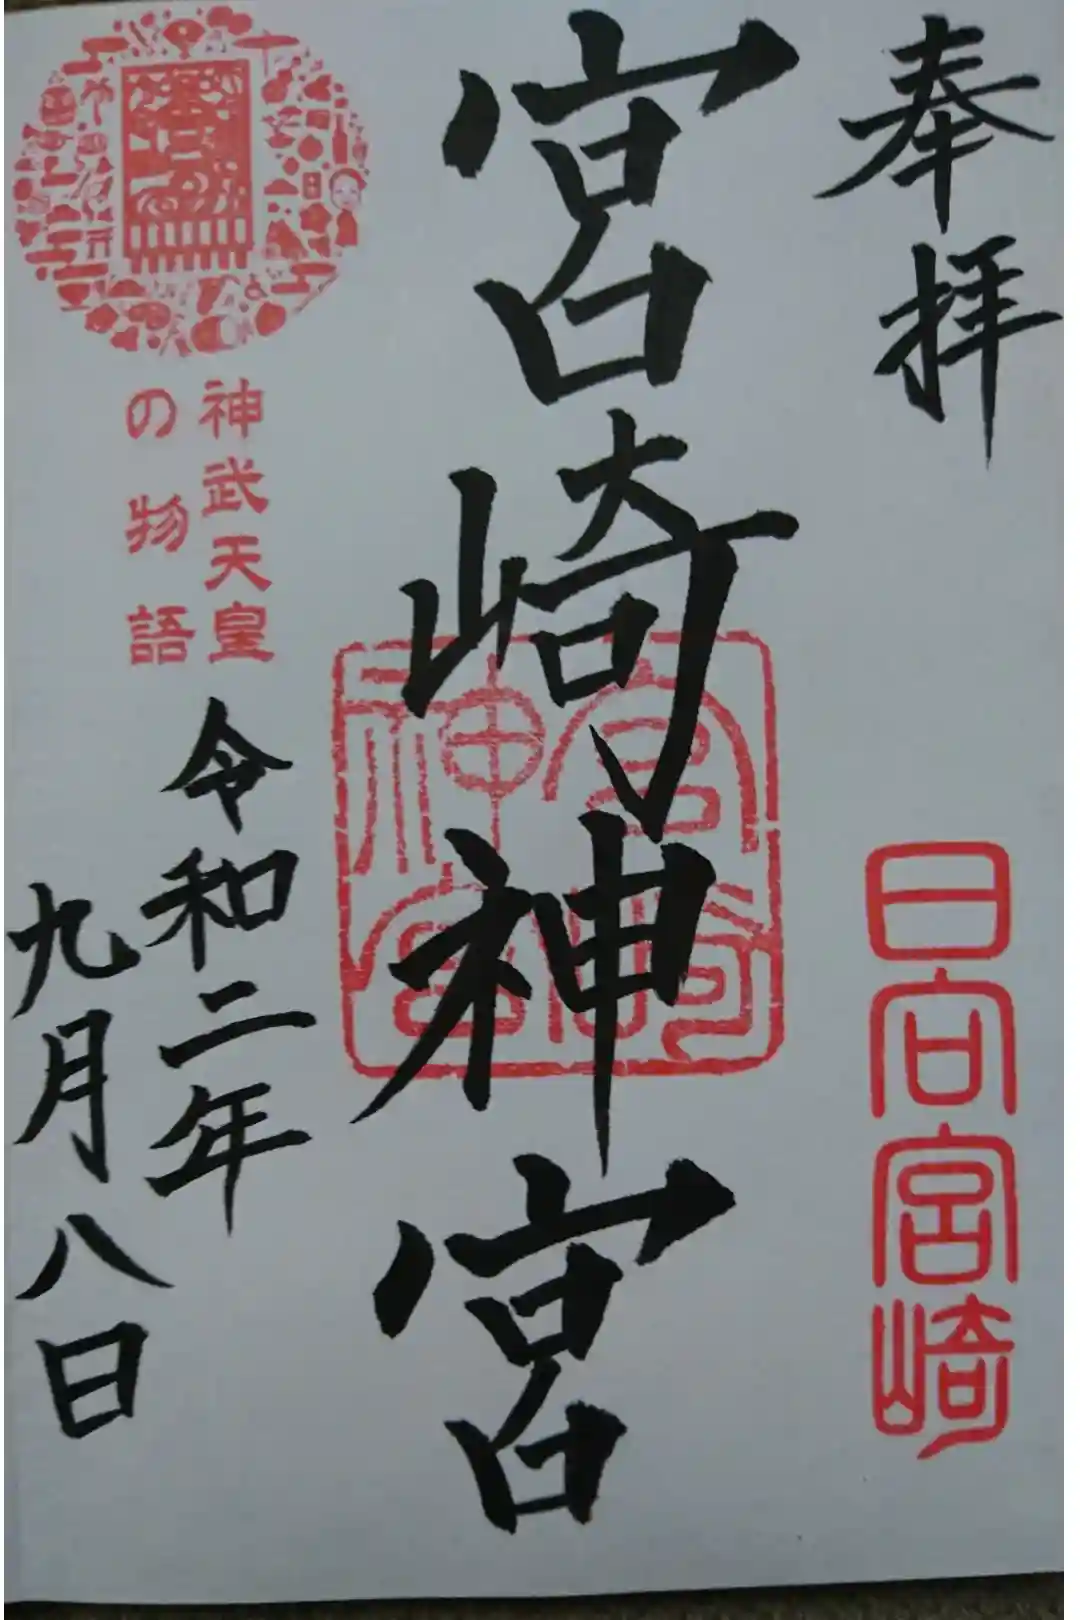 奉拝
日向宮崎
宮崎神宮
宮崎
神宮
神武天皇
の物語
令和二年
九月八日